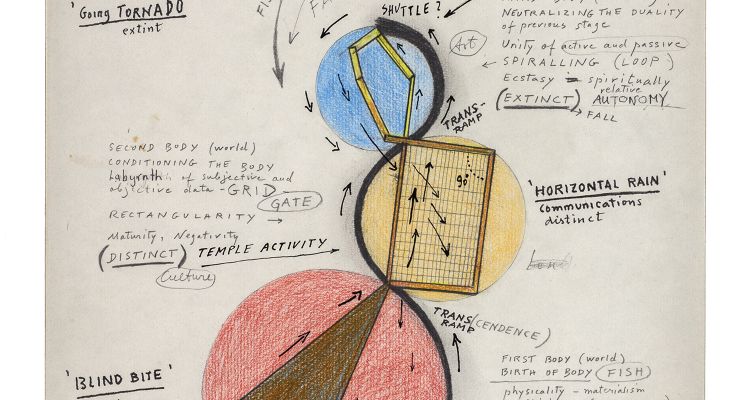 'Going TORNADO
extint
SHUTTLE?
NEUTRALIZING THE DUALITY
of previous stage
Art
Unity of active and passive
← SPIRALLING (LOOP)
Ecstasy = spiritually
relative
(EXTINCT) AUTONOMY
→ FALL
TRANS-
RAMP
SECOND BODY (world)
CONDITIONING THE BODY
labyrinth of subjective and
objective data - GRID -
GATE
RECTANGULARITY →
Maturity, Negativity
(DISTINCT) TEMPLE ACTIVITY
Culture
90°
'HORIZONTAL RAIN'
Communications
distinct
TRANS(CENDENCE)
RAMP
FIRST BODY (world)
BIRTH OF BODY (FISH)
physicality - materialism
'BLIND BITE'